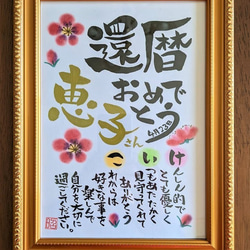 還暦
おめで
とう
恵子さん
けんしん的で
とても優しく
いつもあたたかく
見守ってくれて
ありがとう
これからは
好きな事を
楽しんで
自分を大切に
過ごしてください。